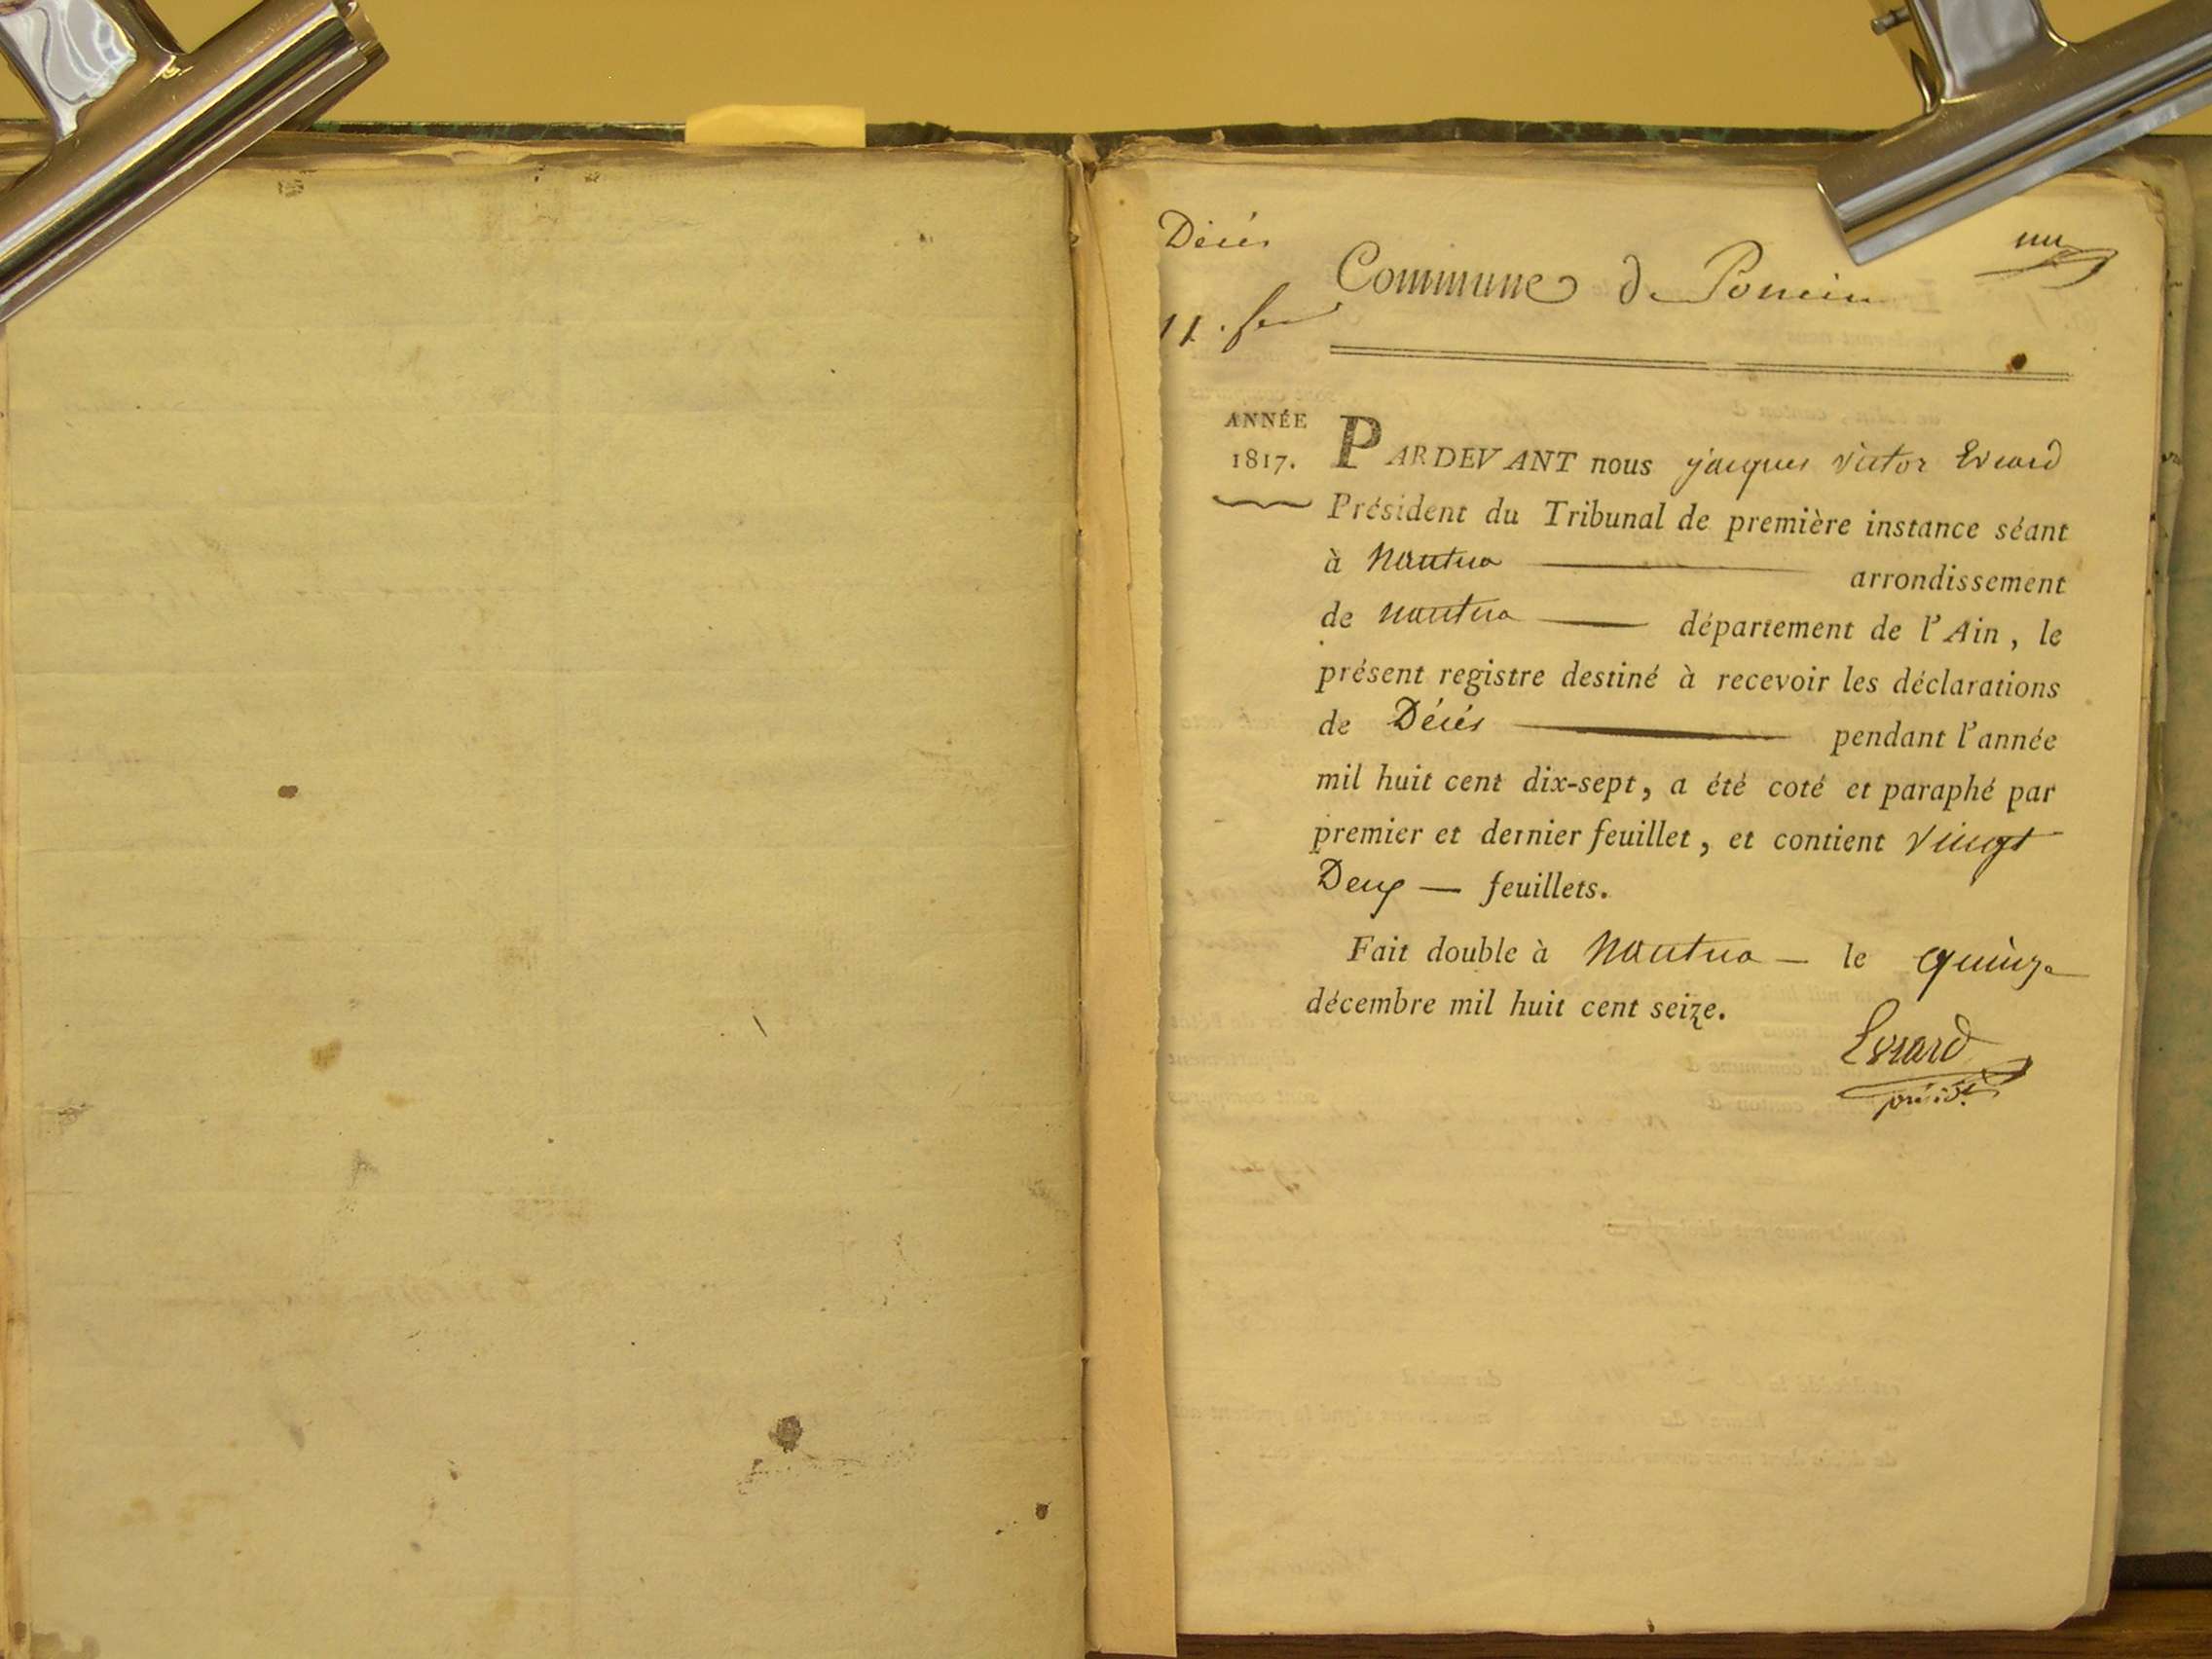 Décés
un
Commune de Poncin
11. fer
ANNÉE
1817.
PARDEVANT nous jacques victor Evrard
Président du Tribunal de première instance séant
à Nantua arrondissement
de nantua département de l'Ain, le
présent registre destiné à recevoir les déclarations
de Décés pendant l'année
mil huit cent dix-sept, a été coté et paraphé par
premier et dernier feuillet, et contient vingt
Deux — feuillets.
Fait double à Nantua — le quinze
décembre mil huit cent seize.
Evrard
présidt